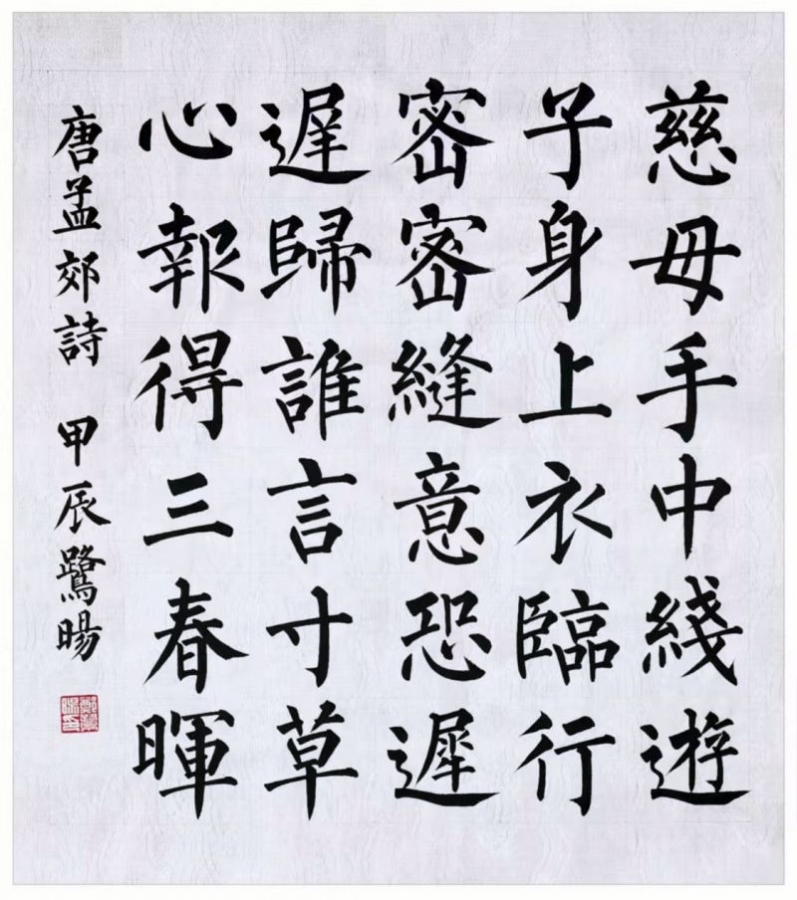 慈母手中綫遊
子身上衣臨行
密密縫意恐遲
遲歸誰言寸草
心報得三春暉
唐孟郊詩 甲辰鷺暘